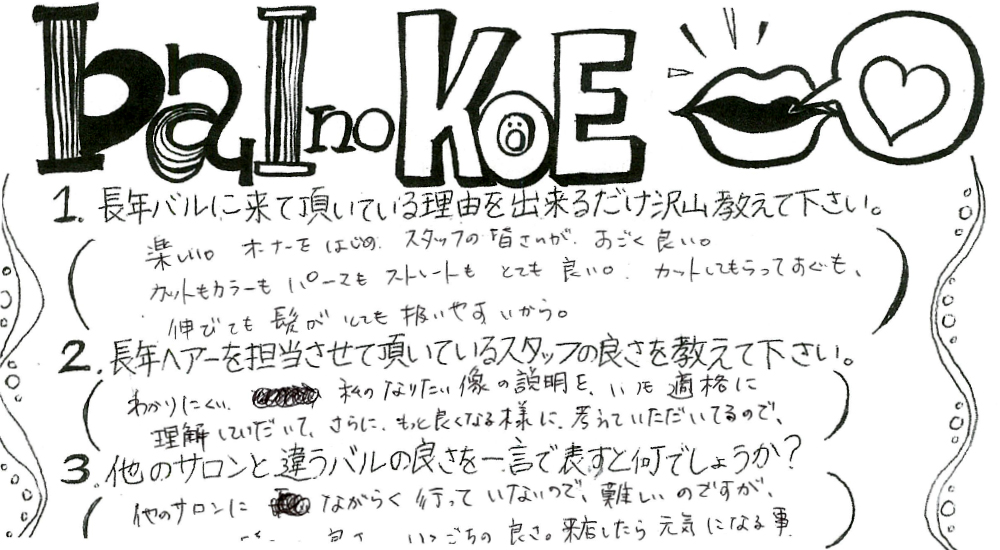 bal no KOE
1. 長年バルに来て頂いている理由を出来るだけ沢山教えて下さい。
楽しい。オーナーをはじめ、スタッフの皆さんが、すごく良い。
カットもカラーもパーマもストレートもとても良い。カットしてもらってすぐも、
伸びても髪がいても扱いやすいから。
2. 長年ヘアーを担当させて頂いているスタッフの良さを教えて下さい。
わかりにくい、私のなりたい像の説明を、いつも適格に
理解していだいて、さらに、もっと良くなる様に、考えていただいてるので、
3. 他のサロンと違うバルの良さを一言で表すと何でしょうか？
他のサロンにながらく行っていないので、難しいのですが、
良さ。来店したら元気になる事